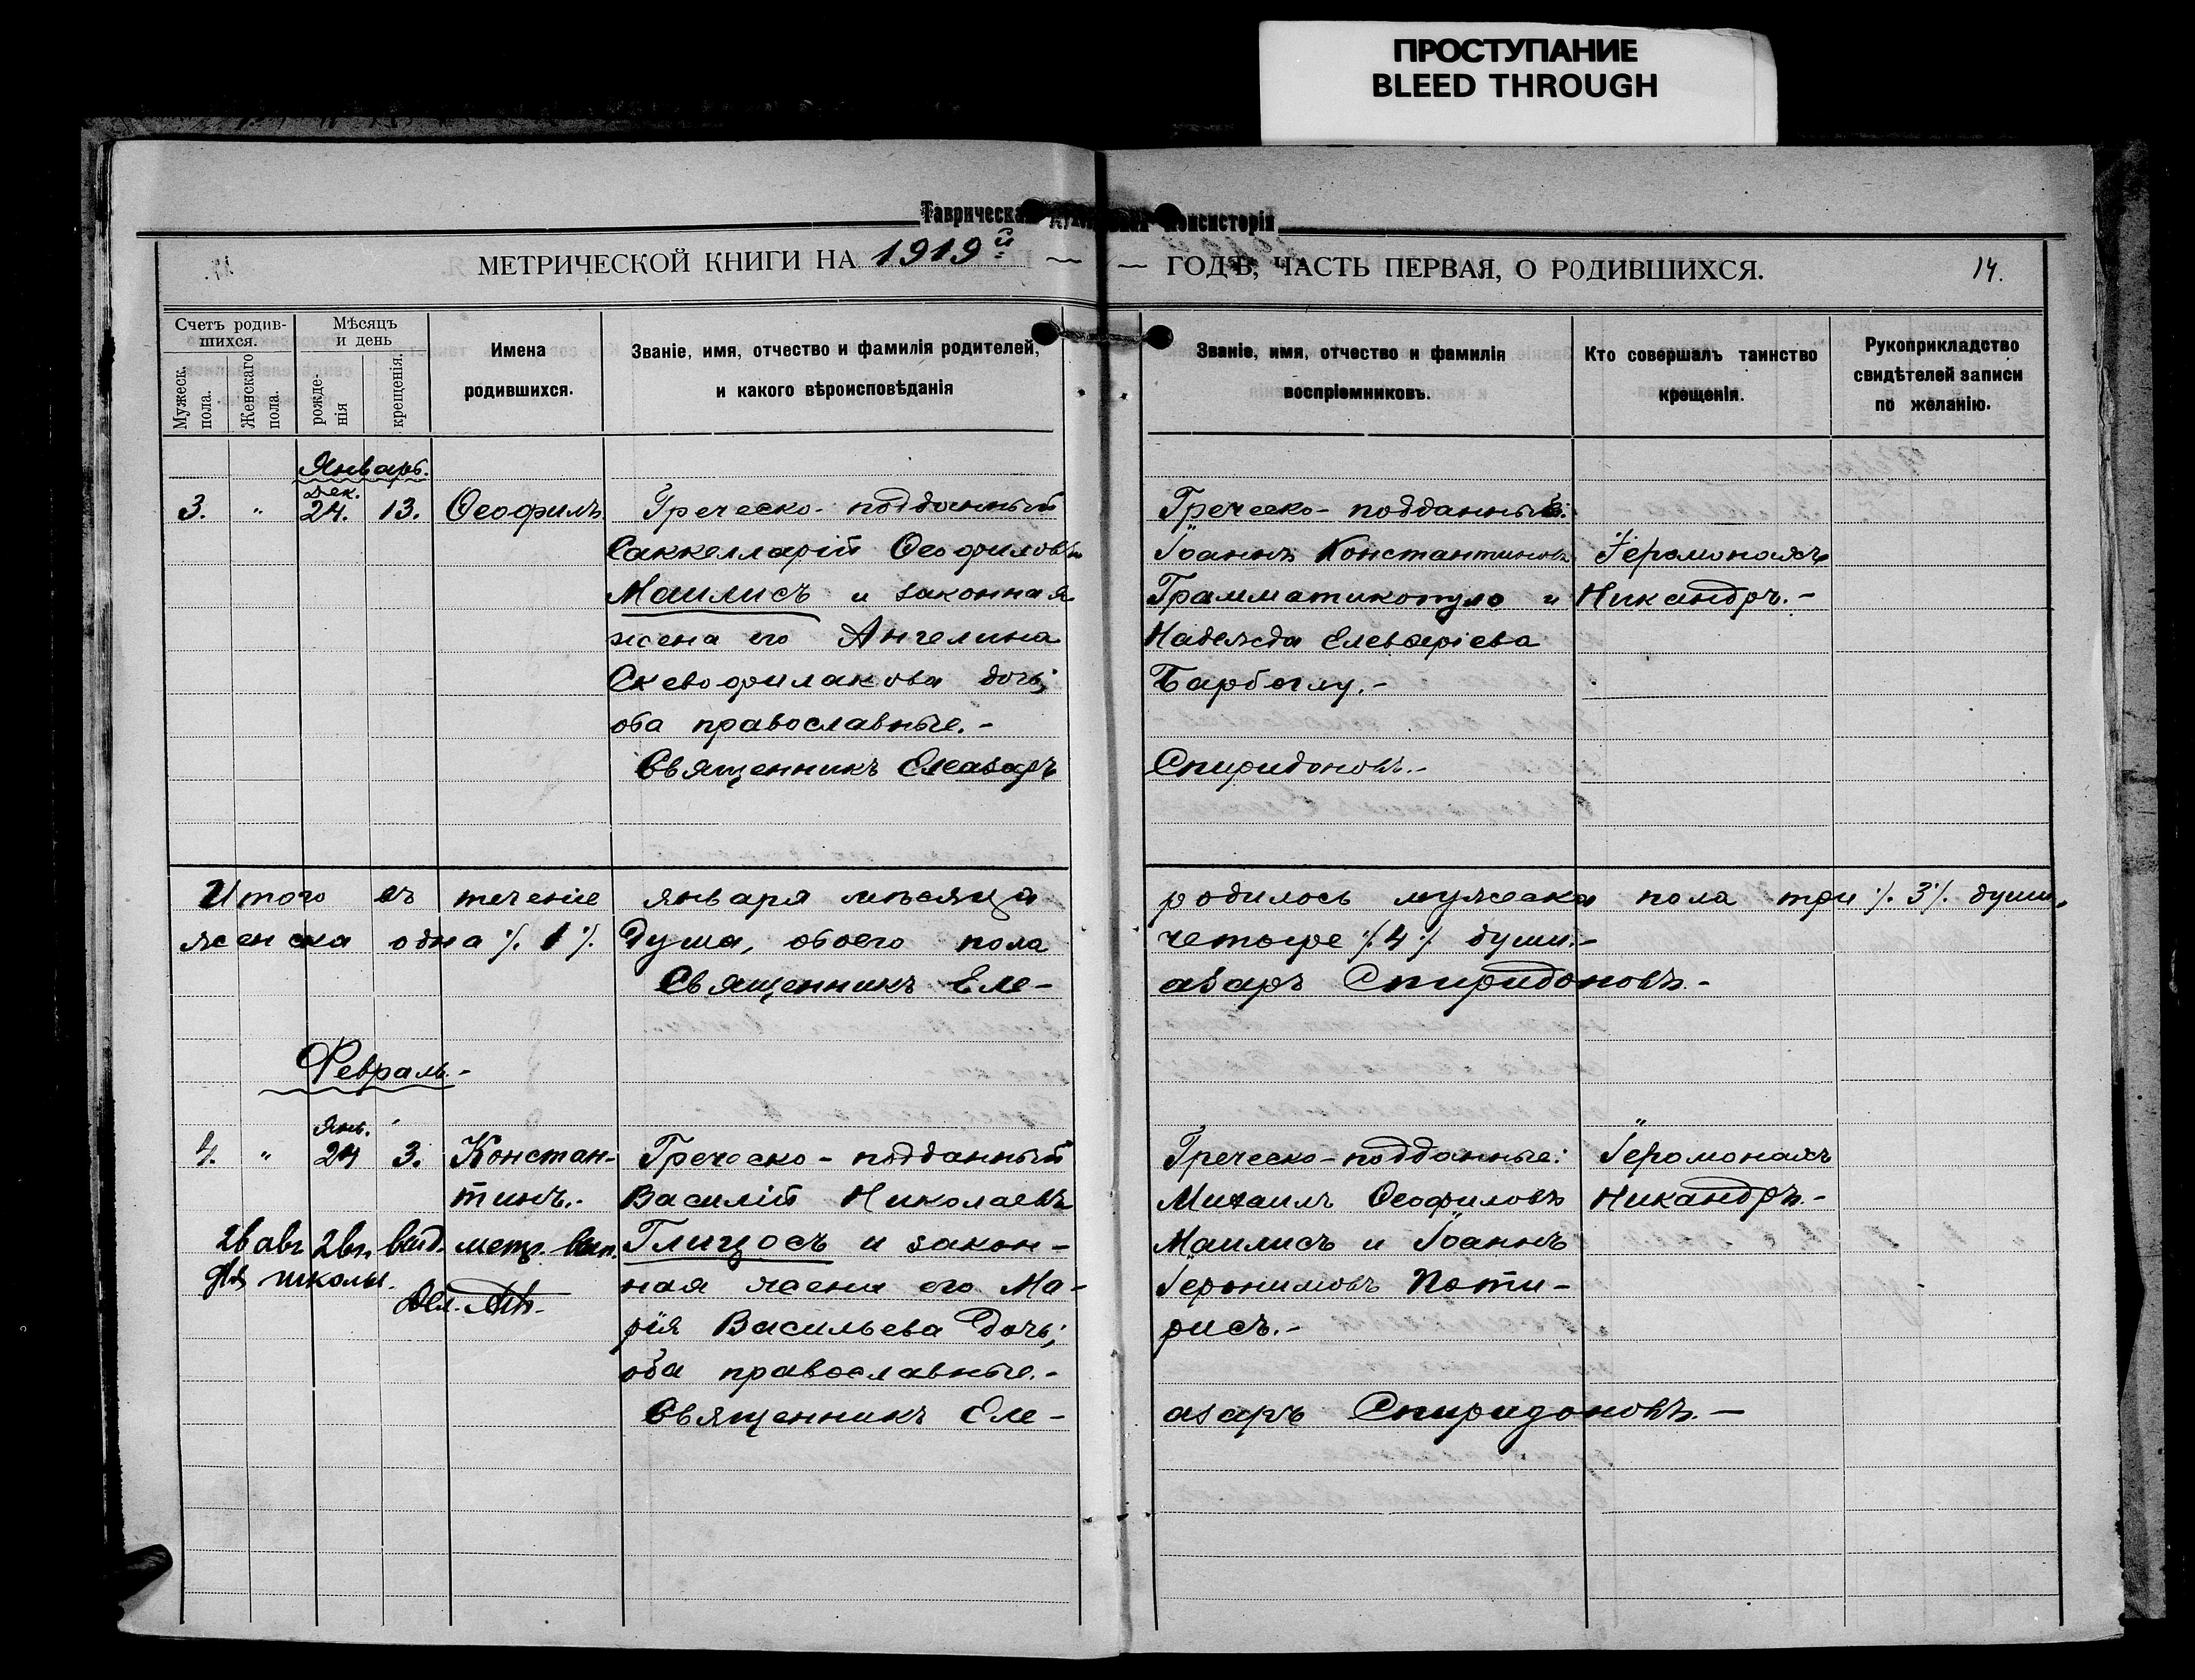 ПРОСТУПАНИЕ
BLEED THROUGH
Таврическая Духовная Консисторія
МЕТРИЧЕСКОЙ КНИГИ НА 1919й ГОДЪ, ЧАСТЬ ПЕРВАЯ, О РОДИВШИХСЯ. 14.
Счетъ родившихся.
Мужеск. пола.
Женскаго пола.
Мѣсяцъ и день
рожденія
крещенія.
Имена родившихся.
Званіе, имя, отчество и фамилія родителей,
и какого вѣроисповѣданія
Званіе, имя, отчество и фамилія
воспріемниковъ.
Кто совершалъ таинство
крещенія.
Рукоприкладство
свидѣтелей записи
по желанію.
Январь.
Дек.
3. " 24. 13. Ѳеофилъ
Греческо-подданный
Саккелларій Ѳеофиловъ
Маилисъ и законная
жена его Ангелина
Скевофилакова дочь;
оба православные.-
Священникъ Елеазаръ
Греческо-подданные:
Іоаннъ Константиновъ
Грамматикопуло и
Надежда Елевѳеріева
Барбоглу.-
Спиридоновъ.-
Іеромонахъ
Никандръ.-
Итого въ теченіе января мѣсяца родилось мужеска пола три ./. 3 ./. души,
женска одна ./. 1 ./. душа, обоего пола четыре ./. 4 ./. души.-
Священникъ Елеазаръ Спиридоновъ.-
Февраль.-
Янв.
4. " 24 3. Констан-
тинъ.-
26 авг 26 г. выд. метр. вып.
для школы.
Греческо-подданный
Василій Николаевъ
Глицосъ и закон-
ная жена его Ма-
рія Васильева дочь;
оба православные.-
Священникъ Еле-
Греческо-подданные:
Михаилъ Ѳеофиловъ
Маилисъ и Іоаннъ
Іеронимовъ Поти-
рисъ.-
азаръ Спиридоновъ.-
Іеромонахъ
Никандръ.-